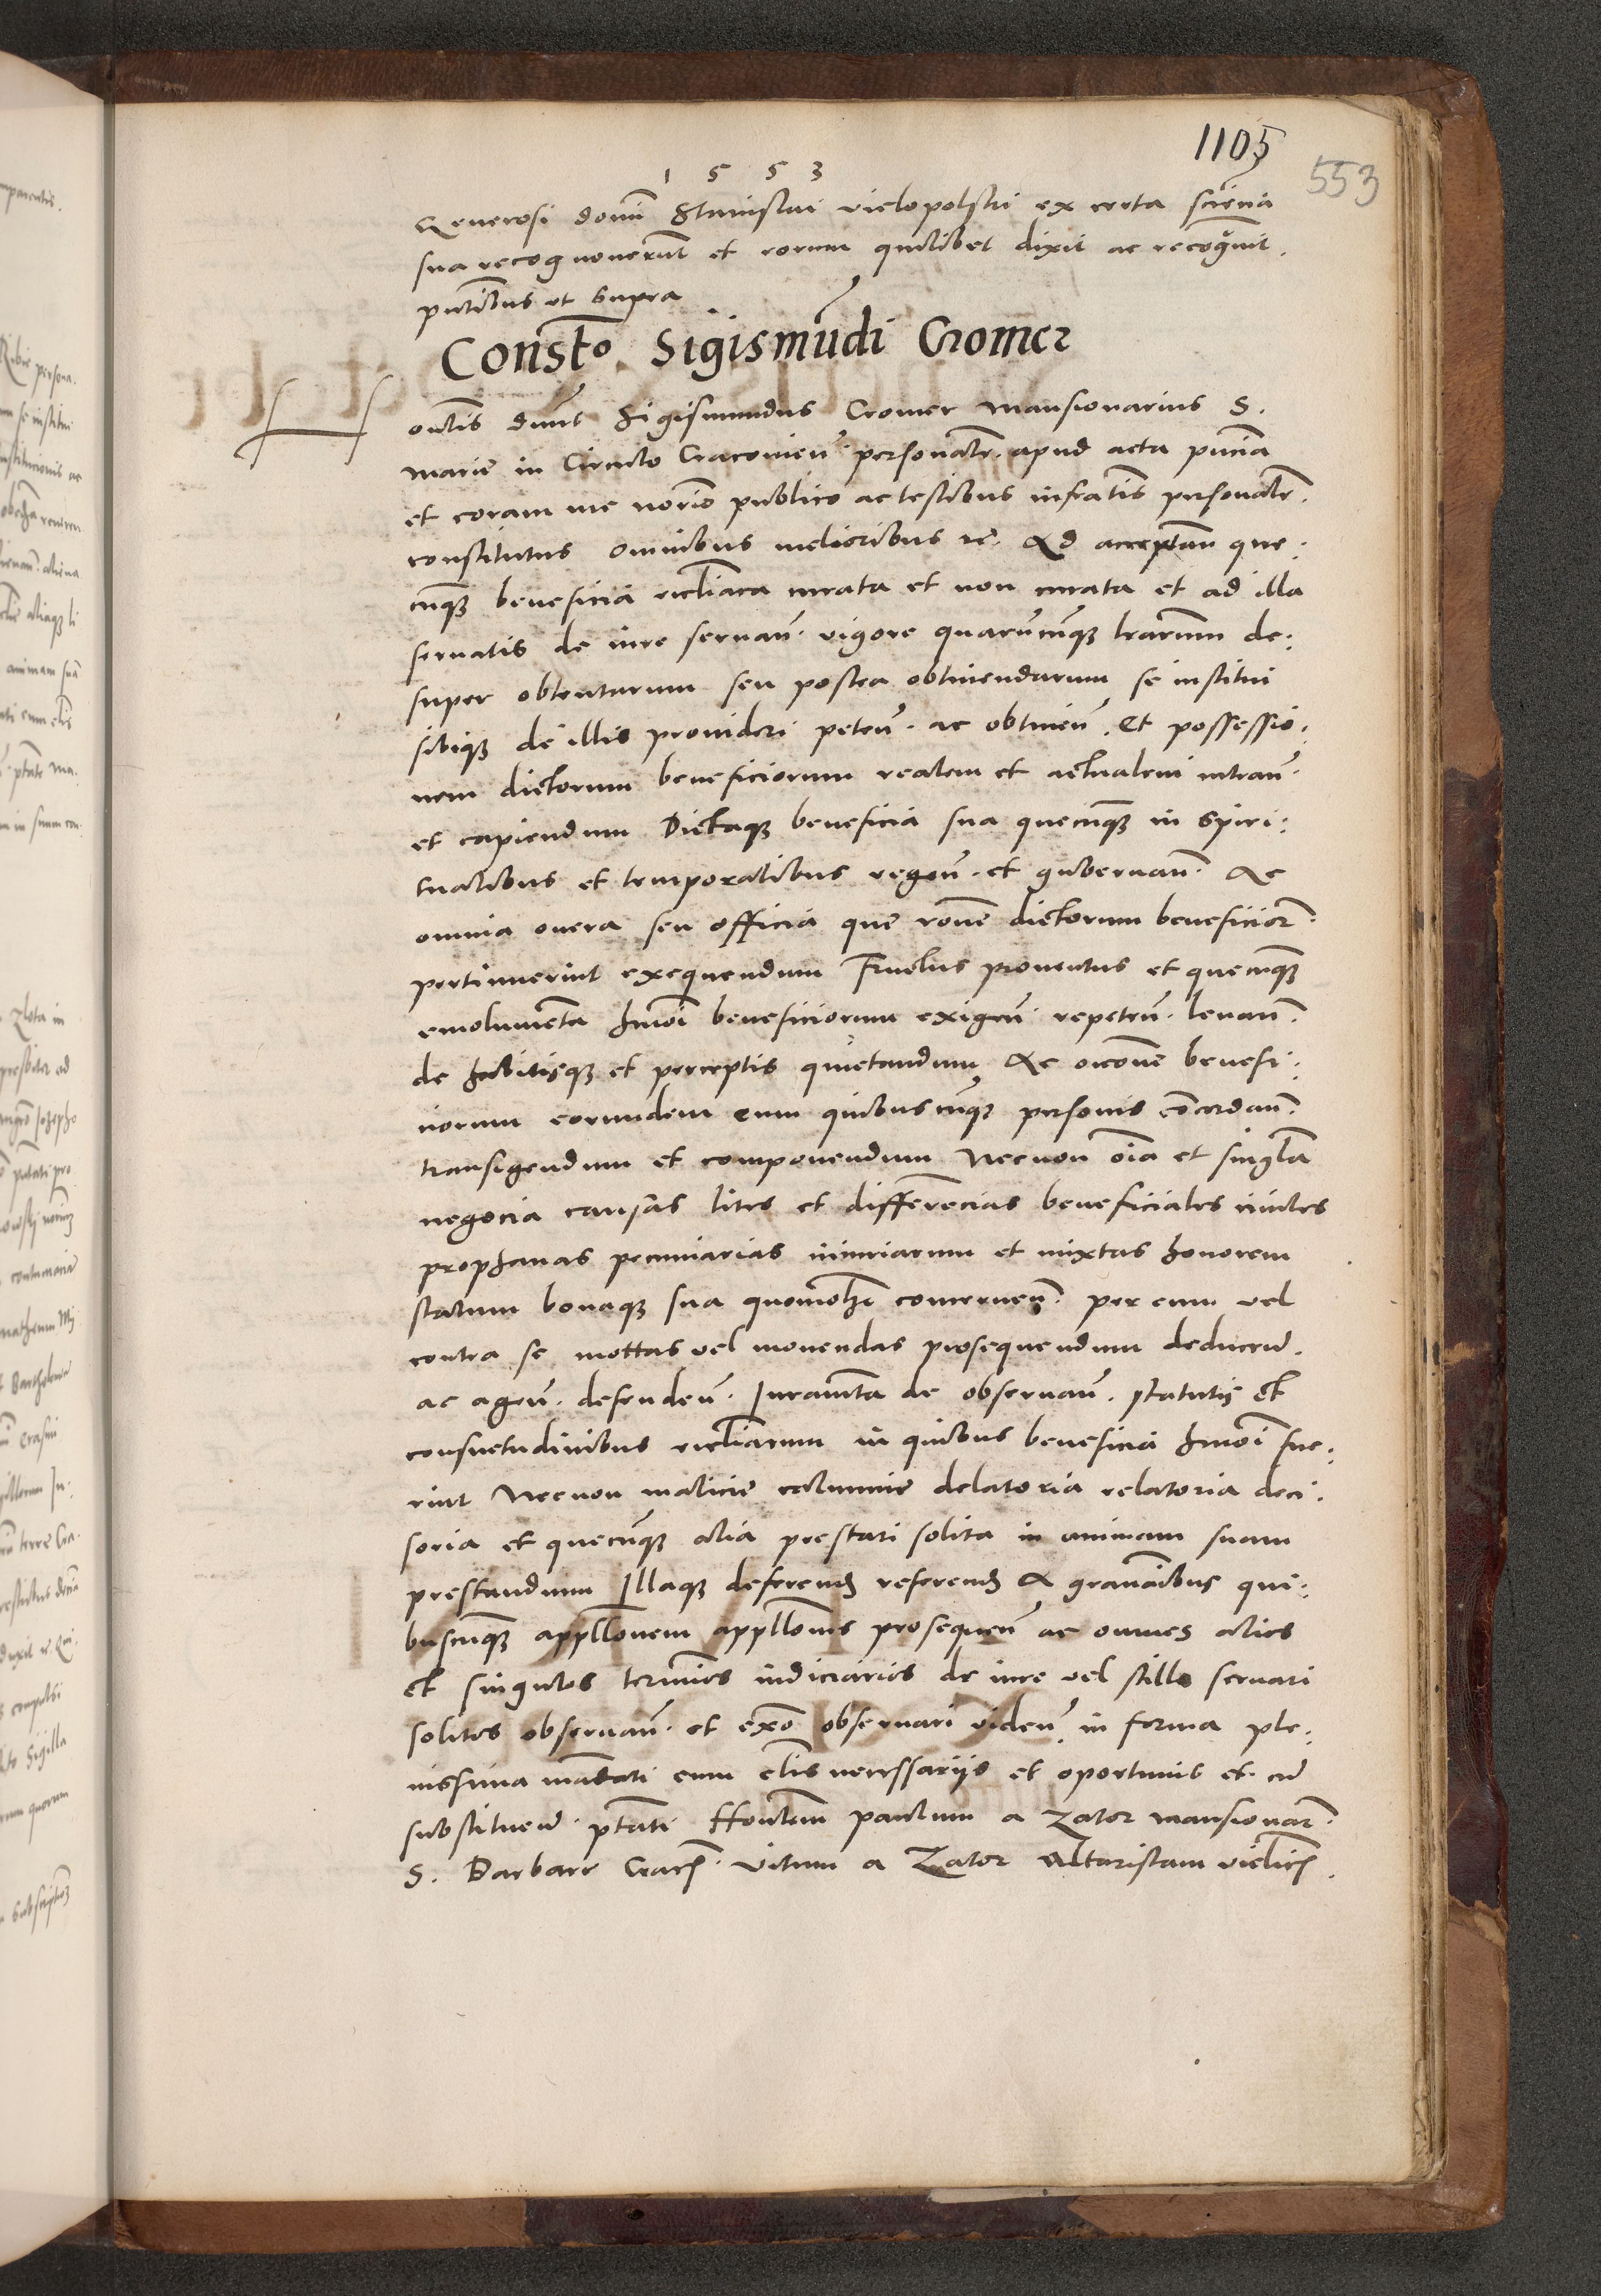 1105
553
1 5 5 3
Generosi domi Stanislai vielopolski ex certa sciencia
sua recognoverunt et eorum quilibet dixit ac recognvit.
pntibus ut supra
Consto Sigismudi Cromer
Hontlis dnus Sigismundus Cromer mansionarius S.
marie in Circulo Cracovien personalr. apud acta pncia
et coram me norio publico ac testibus infratis personalr.
constitutus omnibus melioribus rc. Ad acceptan que:
cumq beneficia ecclīaca curata et non curata et ad illa
servatis de iure servan. vigore quarumcumq lrarum de:
super obtentarum seu postea obtinendarum se institui
sibiq de illis provideri peten. ac obtinen. Et possessio:
nem dictorum beneficiorum realem et actualem intran.
et capiendum Dictaq beneficia sua quecumq in spiri:
tualibus et temporalibus regen. et gubernan. Ac
omnia onera seu officia que rone dictorum beneficior.
pertinuerint exequendum Fructus proventus et quecumq
emolumenta hmoi beneficiorum exigen. repeten. levan.
de habitisq et perceptis quietandum Ac occone benefi:
ciorum eorundem cum quibuscumq personis concordan.
transigendum et componendum Necnon oia et singla
negocia causas lites et differencias beneficiales civiles
prophanas pecuniarias iniuriarum et mixtas honorem
statum bonaq sua quomolt concernen. per eum vel
contra se mottas vel movendas prosequendum deducend.
ac agen. defenden. Iuramta de observan. statutis et
consuetudinibus eccliarum in quibus beneficia hmoi fue:
rint Necnon malicie calumnie delatoria relatoria deci:
soria et quecumq alia prestari solita in animam suam
prestandum Illaq deferend referend A gravaibus qui:
buscumq appllonem appllonis prosequen ac omnes alios
et singulos terminos iudiciarios de iure vel stillo servari
solitos observan. et exo observari viden. in forma ple:
nissima mandati cum clis necessariis et oportunis et cu
substituend. ptati Hontlem paulum a Zator mansionar.
S. Barbare Crac. Vitum a Zator Altaristam vielic.